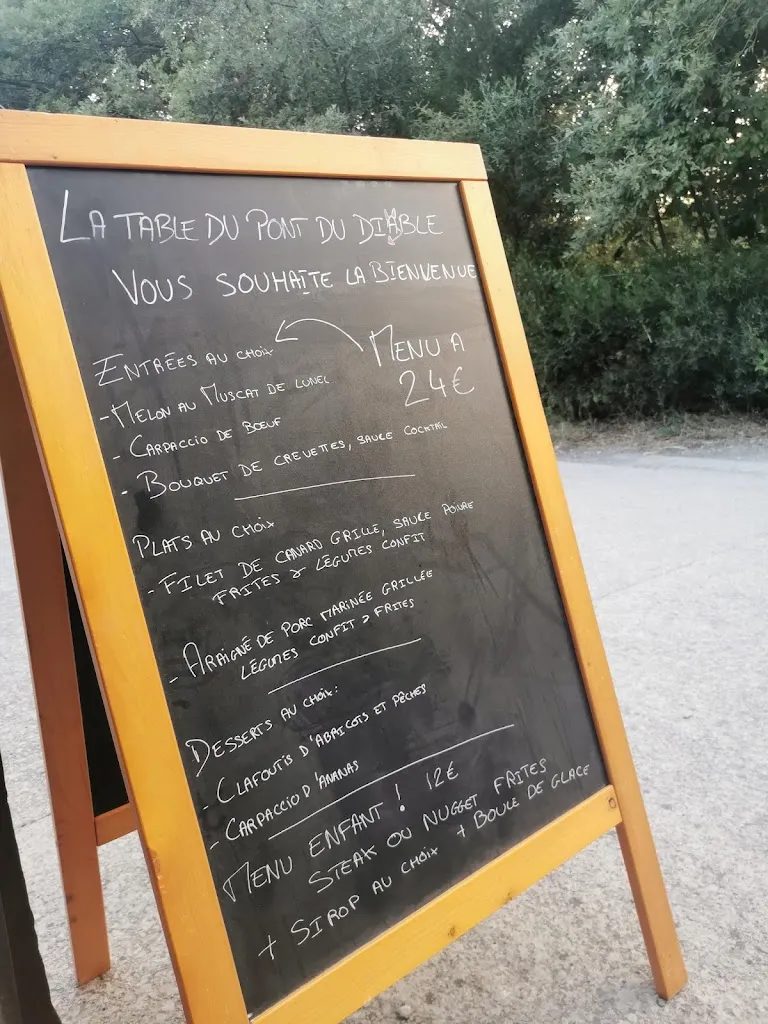 LA TABLE DU PONT DU DIABLE
VOUS SOUHAITE LA BIENVENUE
MENU A
24€
ENTRÉES AU CHOIX
- MELON AU MUSCAT DE LUNEL
- CARPACCIO DE BŒUF
- BOUQUET DE CREVETTES, SAUCE COCKTAIL
PLATS AU CHOIX
- FILET DE CANARD GRILLE, SAUCE POIVRE
FRITES & LÉGUMES CONFIT
- ARAIGNÉ DE PORC MARINÉE GRILLÉE
LÉGUMES CONFIT & FRITES
DESSERTS AU CHOIX:
- CLAFOUTIS D'ABRICOTS ET PÊCHES
- CARPACCIO D'ANANAS
MENU ENFANT ! 12€
STEAK OU NUGGET FRITES
+ SIROP AU CHOIX + BOULE DE GLACE